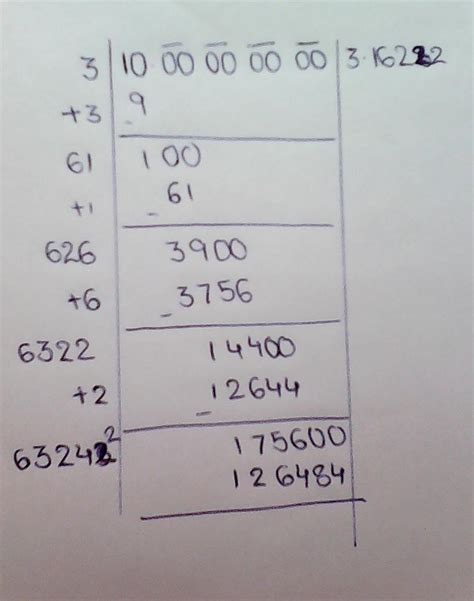 3 10 00 00 00 00 3.16222
+3 9
61 100
+1 - 61
626 3900
+6 - 3756
6322 14400
+2 - 12644
63242 175600
126484